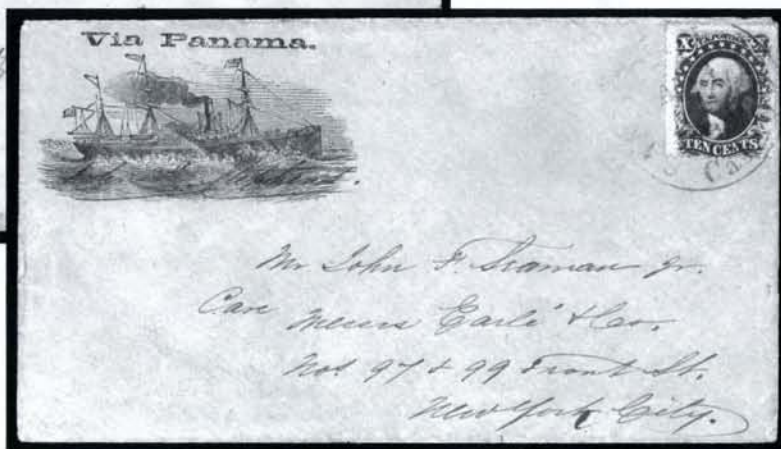 Via Panama.
X
TEN CENTS
Cal
Mr John F. Seaman Jr.
Care Messrs Earle & Co.
Nos 97 & 99 Front St.
New York City.